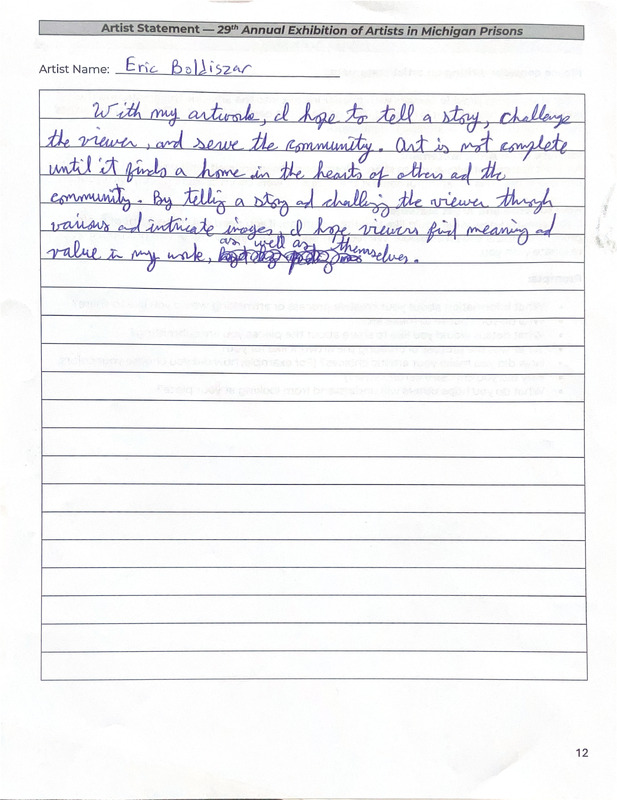 Artist Statement — 29th Annual Exhibition of Artists in Michigan Prisons
Artist Name: Eric Boldiszar
With my artwork, I hope to tell a story, challenge
the viewer, and serve the community. Art is not complete
until it finds a home in the hearts of others ad the
community. By tellig a story ad challgig the viewer through
various ad intricate images, I hope viewers find meaning ad
value in my work, as well as themselves.
12